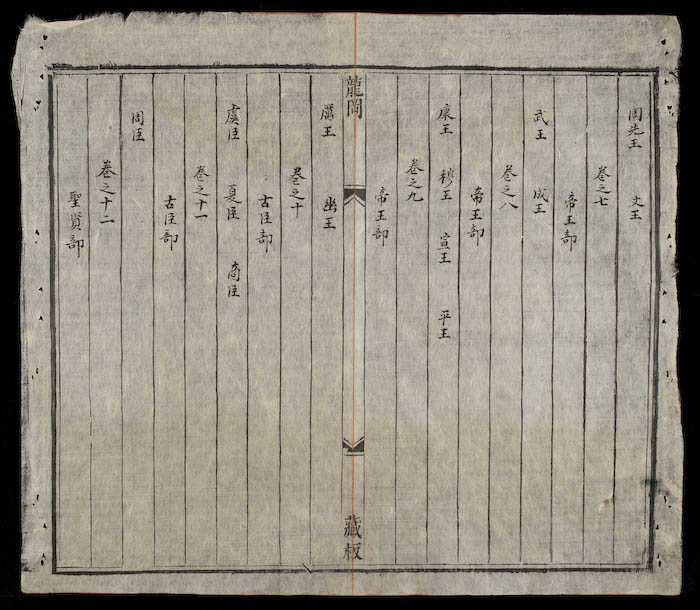 周先王 文王
卷之七
帝王部
武王 成王
卷之八
帝王部
康王 穆王 宣王 平王
卷之九
帝王部
龍岡
藏板
厲王 幽王
卷之十
古臣部
虞臣 夏臣 商臣
卷之十一
古臣部
周臣
卷之十二
聖賢部